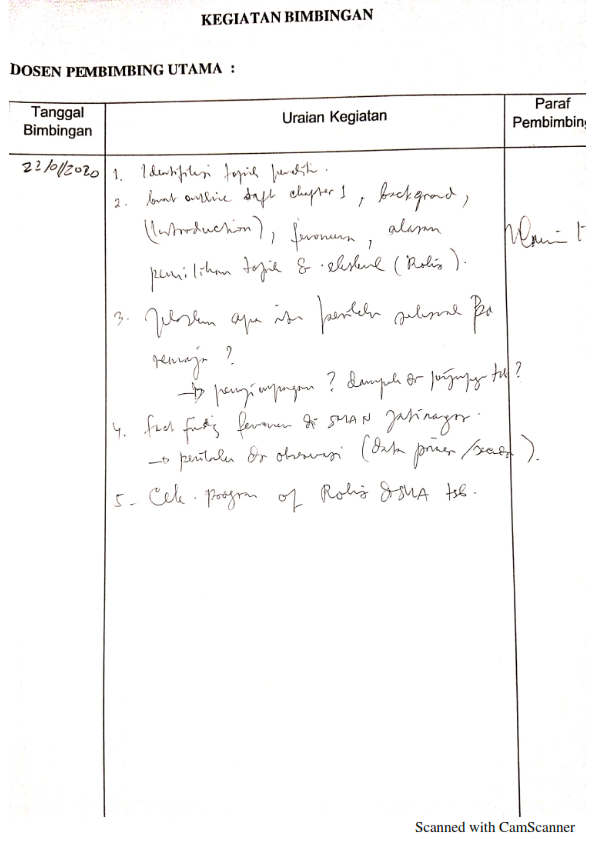 KEGIATAN BIMBINGAN
DOSEN PEMBIMBING UTAMA :
Tanggal Bimbingan
Uraian Kegiatan
Paraf Pembimbing
22/01/2020
1. Identifikasi topik penelit.
2. buat outline draft chapter 1, background,
(Introduction), fenomena, alasan
pemilihan topik & ekskul (Rohis).
3. Jelaskan apa itu perilaku seksual pra
remaja ?
→ penyimpangan ? dampak dr tsb ?
4. Fact finding fenomena di SMAN Jatinangor.
→ perilaku dr observasi (data primer / ).
5. Cek program of Rohis di SMA tsb.
Scanned with CamScanner